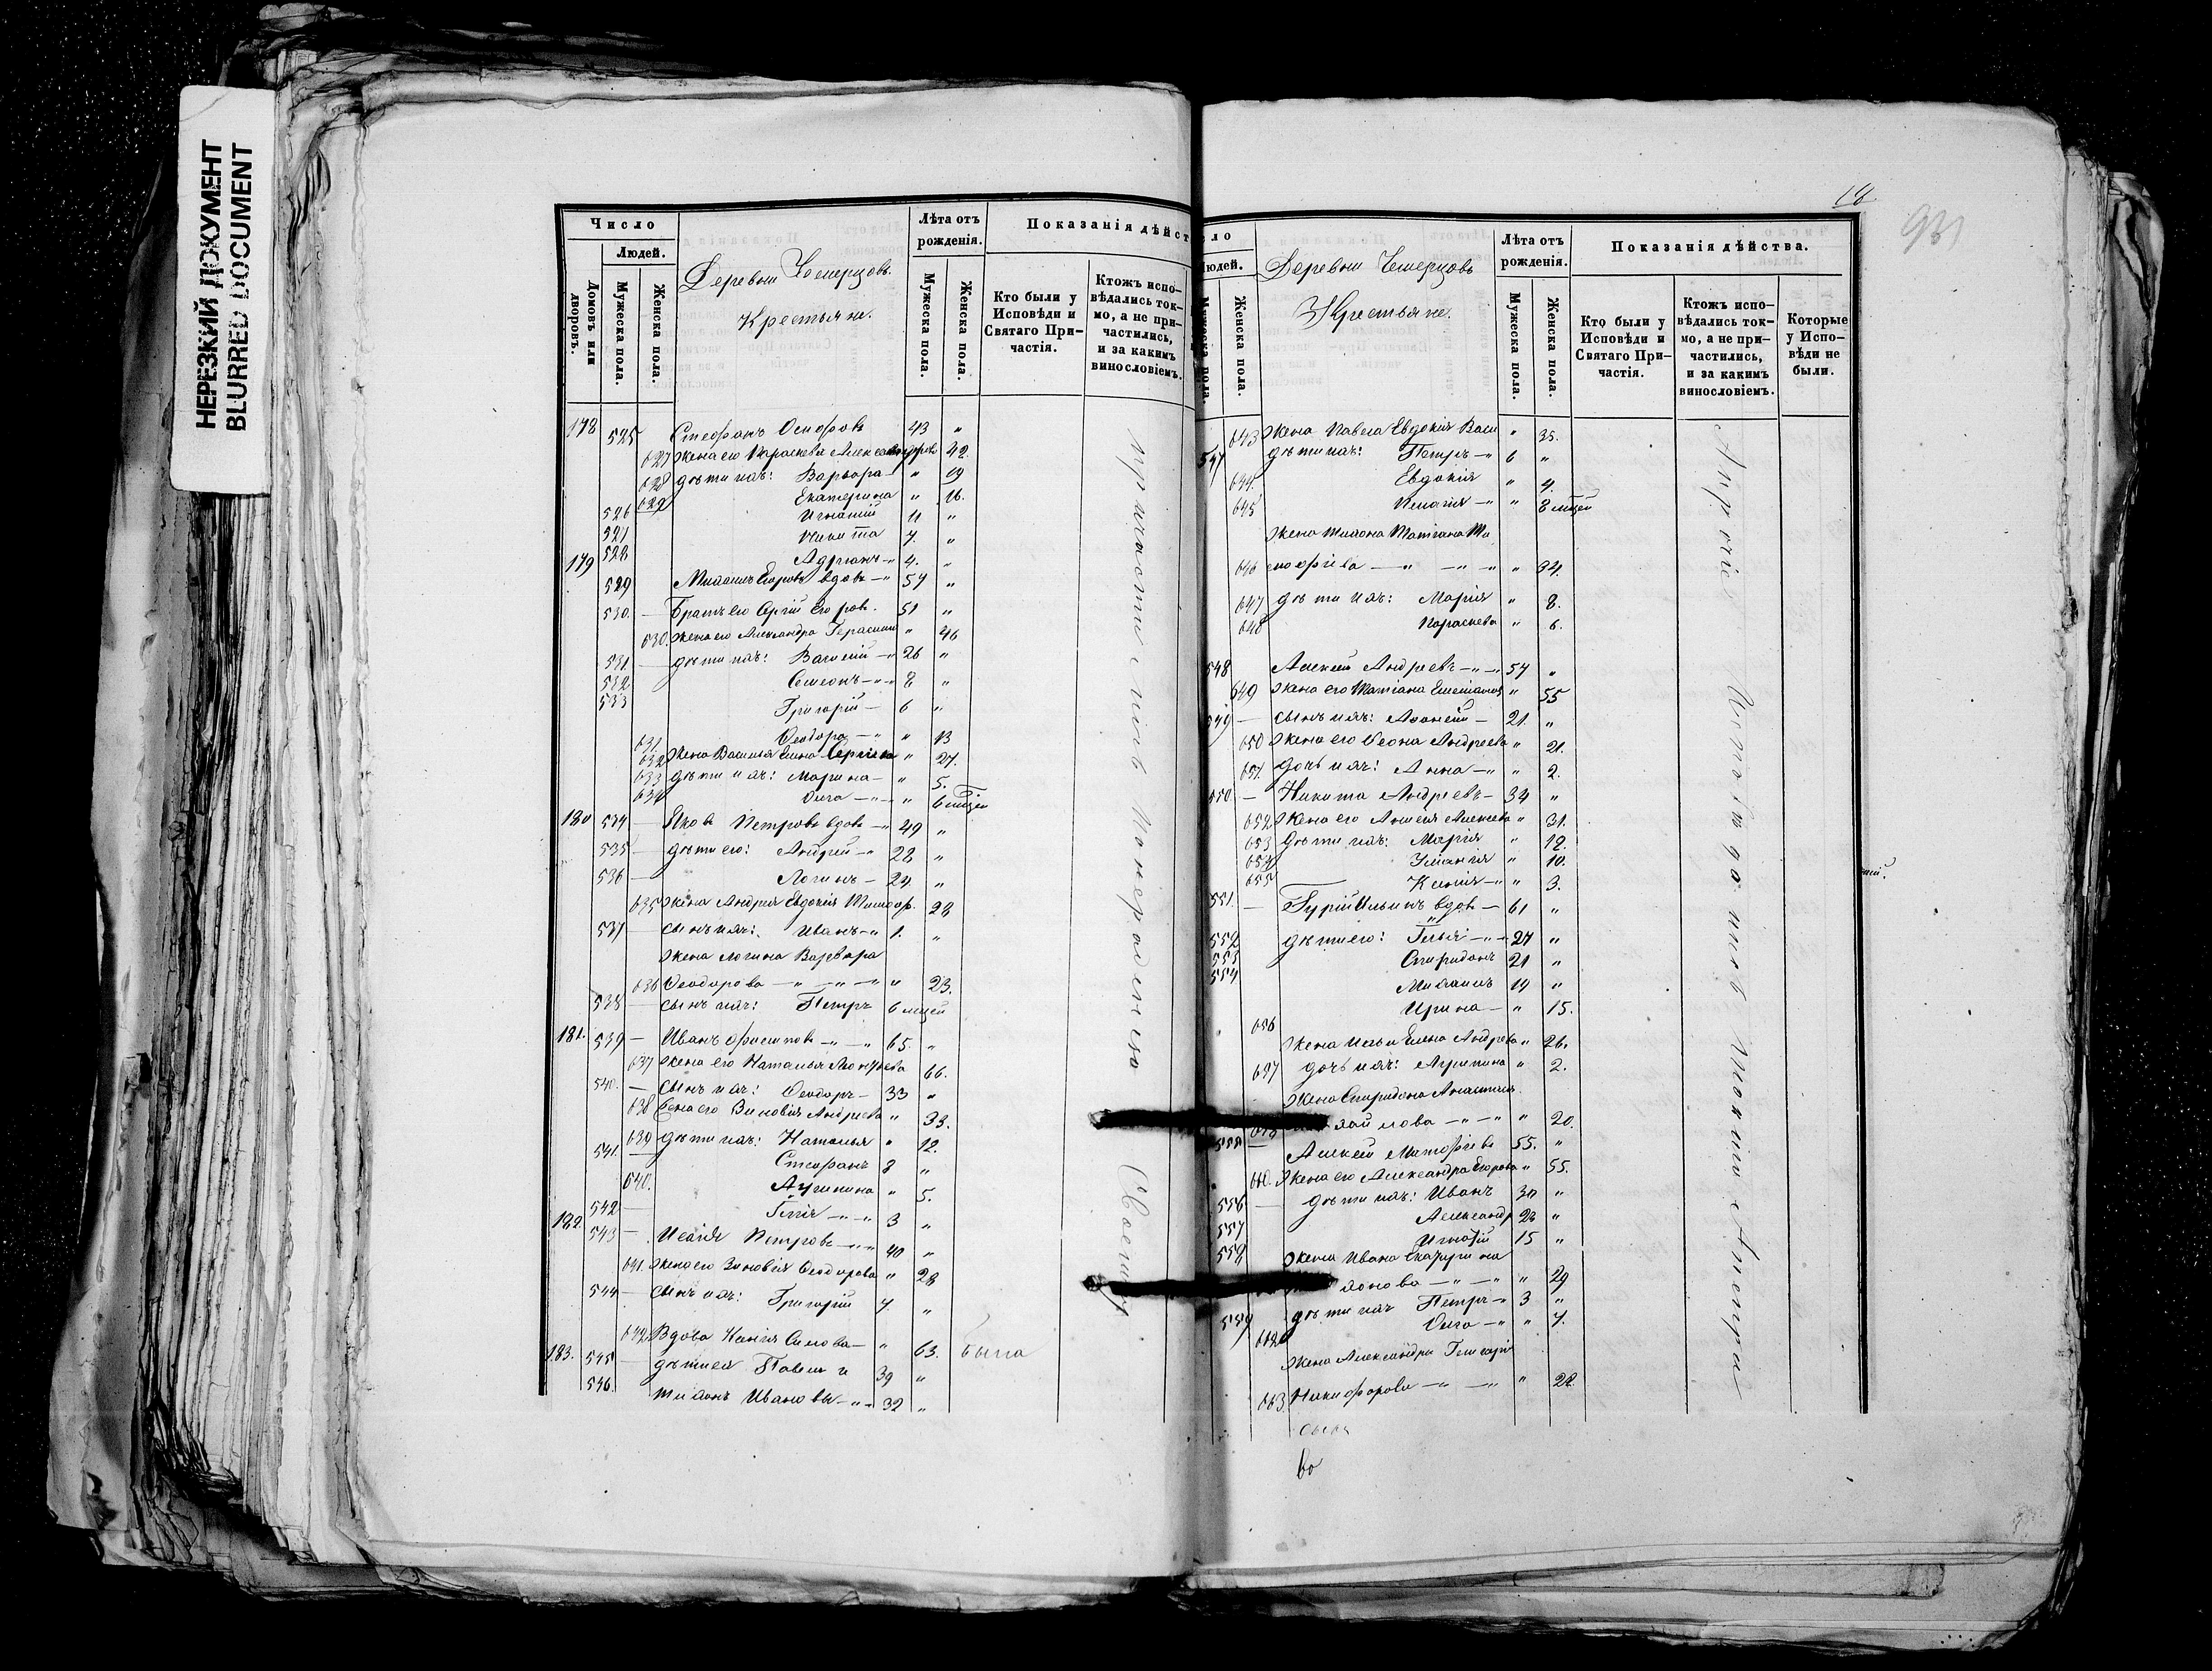 НЕРЕЗКИЙ ДОКУМЕНТ
BLURRED DOCUMENT
Число
Людей.
Домовъ или дворовъ.
Мужеска пола.
Женска пола.
Деревни
Крестьяне.
Лѣта отъ рожденія.
Мужеска пола.
Женска пола.
Показанія дѣйст
Кто были у Исповѣди и Святаго Причастія.
Ктожъ исповѣдались токмо, а не причастились, и за какимъ винословіемъ.
178 525 Стефанъ Осиповъ 43 "
627 Жена его Параскева Александрова 42.
628 дѣти ихъ: Варвара " 19
629 Екатерина " 16.
526 Игнатій 11 "
527 Никита 7. "
528 Адріанъ 4. "
179 529 Михаилъ Егоровъ вдовъ 57 "
530. Братъ его Сергій Егоровъ. 51 "
630. Жена его Александра Герасимо " 46
531. дѣти ихъ: Василій 26 "
532 Симеонъ 8 "
533 Григорій 6 "
631. Ѳеодора " 13
632 Жена Василія Елена Сергіева " 27.
633 дѣти ихъ: Марина " 5.
634 Ольга " 6 мѣсец
180 534 Яковъ Петровъ вдовъ 49 "
535 дѣти его: Андрей 28 "
536 Логинъ 24 "
635 Жена Андрея Евдокія Тимоф. 28
537 сынъ ихъ: Иванъ 1. "
Жена Логина Варвара
636 Ѳеодорова " 23.
538 сынъ ихъ: Петръ 6 мѣсец
181. 539 Иванъ Филиповъ 65. "
637 Жена его Наталья 66.
540. сынъ ихъ: Ѳеодоръ 33 "
638 Жена его Зиновія Андреева " 33.
639 дѣти ихъ: Наталья " 12.
541. Стефанъ 8 "
640. Агрипина " 5.
542 Илія 3 "
182. 543 Исаія Петровъ 40 "
641. Жена его Зиновія Ѳеодорова " 28
544 сынъ ихъ: Григорій 7 "
642. Вдова Ксенія Силова " 63. была
183. 545 дѣти ея Павелъ и 39 "
546. Тихонъ Ивановы 32 "
18
931
Людей.
Мужеска пола.
Женска пола.
Деревни
Крестьяне.
Лѣта отъ рожденія.
Мужеска пола.
Женска пола.
Показанія дѣйства.
Кто были у Исповѣди и Святаго Причастія.
Ктожъ исповѣдались токмо, а не причастились, и за какимъ винословіемъ.
Которые у Исповѣди не были.
643 Жена Павла Евдокія Васи " 35.
547 дѣти ихъ: Петръ 6 "
644. Евдокія " 4.
645 Пелагія " 8 мѣсец
Жена Тихона Татіана Ти
646 моѳеева " 34.
647 дѣти ихъ: Марія " 8.
648 Параскева " 6.
548 Алексѣй Андреевъ 57 "
649 Жена его Татіана " 55
549 сынъ ихъ: 21. "
650 Жена его Андреева " 21.
651. дочь ихъ: Анна " 2.
550. Никита Андреевъ 34 "
652 Жена его Алексѣева " 31.
653 дѣти ихъ: Марія " 12.
654 " 10.
655 Ксенія " 3.
551. Гурій Ильинъ вдовъ 61 "
552 дѣти его: Илья 27 "
553 Спиридонъ 21 "
554 Михаилъ 19 "
656 Ирина " 15.
Жена Ильи Елена Андреева " 26.
657 дочь ихъ: Агрипина " 2.
Жена Спиридона Анастасія
хайлова " 20.
555 Алексѣй 55. "
660. Жена его Александра Егорова " 55.
556 дѣти ихъ: Иванъ 30 "
557 Александр 23 "
558 Игнатій 15 "
Жена Ивана Екатерина
" 29
559 дѣти ихъ Петръ 3 "
662 Ольга " 7.
Жена Александра
663. Никифорова " 22.
сынъ